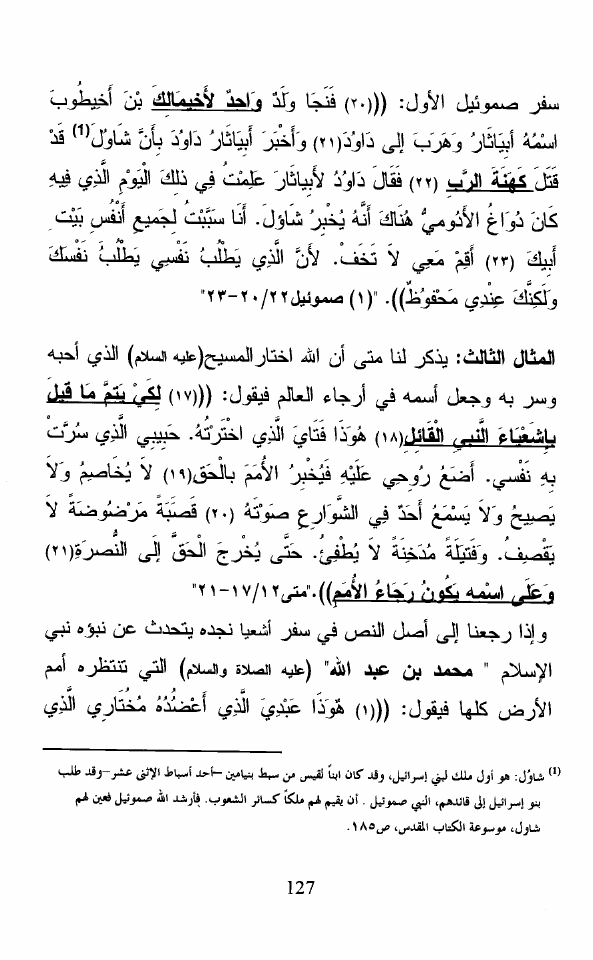 سفر صموئيل الأول: ((‏(٢٠) فَنَجَا وَلَدٌ وَاحِدٌ لأَخِيمَالِكَ بْنَ أَخِيطُوبَ
اسْمُهُ أَبِيَاثَارُ وَهَرَبَ إِلى دَاوُدَ(٢١) وَأَخْبَرَ أَبِيَاثَارُ دَاوُدَ بِأَنَّ شَاوُلَ(1) قَدْ
قَتَلَ كَهَنَةَ الرَّبِ (٢٢) فَقَالَ دَاوُدُ لأَبِيَاثَارَ عَلِمْتُ فِي ذلِكَ الْيَوْمِ الَّذِي فِيهِ
كَانَ دُوَاغُ الأَدُومِيُّ هُنَاكَ أَنَّهُ يُخْبِرُ شَاوُلَ. أَنَا سَبَّبْتُ لِجَمِيعِ أَنْفُسِ بَيْتِ
أَبِيكَ (٢٣) أَقِمْ مَعِي لاَ تَخَفْ. لأَنَّ الَّذِي يَطْلُبُ نَفْسِي يَطْلُبُ نَفْسَكَ
وَلكِنَّكَ عِنْدِي مَحْفُوظٌ)). "(١) صموئيل٢٠/٢٢-٢٣"
المثال الثالث: يذكر لنا متى أن الله اختار المسيح(عليه السلام) الذي أحبه
وسر به وجعل أسمه في أرجاء العالم فيقول: ((‏(١٧) لِكَيْ يَتِمَّ مَا قِيلَ
بِإِشَعْيَاءَ النَّبِيِ الْقَائِلِ(١٨) هُوَذَا فَتَايَ الَّذِي اخْتَرْتُهُ. حَبِيبِي الَّذِي سُرَّتْ
بِهِ نَفْسِي. أَضَعُ رُوحِي عَلَيْهِ فَيُخْبِرُ الأُمَمَ بِالْحَق(١٩) لاَ يُخَاصِمُ وَلاَ
يَصِيحُ وَلاَ يَسْمَعُ أَحَدٌ فِي الشَّوَارِعِ صَوْتَهُ (٢٠) قَصَبَةً مَرْضُوضَةً لاَ
يَقْصِفُ. وَفَتِيلَةً مُدَخِنَةً لاَ يُطْفِئُ. حَتَّى يُخْرِجَ الْحَقَّ إِلَى النُّصرَةِ(٢١)
وَعَلَى اسْمِهِ يَكُونُ رَجَاءُ الأُمَمِ)).‏"متى١٧/١٢-٢١"
وإذا رجعنا إلى أصل النص في سفر أشعيا نجده يتحدث عن نبؤه نبي
الإسلام " محمد بن عبد الله" (عليه الصلاة والسلام) التي تنتظره أمم
الأرض كلها فيقول: ((‏(١) هُوَذَا عَبْدِيَ الَّذِي أَعْضُدُهُ مُخْتَارِي الَّذِي
(1) شاوُل: هو أول ملك لبني إسرائيل، وقد كان ابناً لقيس من سبط بنيامين –أحد أسباط الإثنى عشر–وقد طلب
بنو إسرائيل إلى قائدهم، النبي صموئيل . أن يقيم لهم ملكاً كسائر الشعوب. فأرشد الله صموئيل فعين لهم
شاول، موسوعة الكتاب المقدس، ص١٨٥.
127